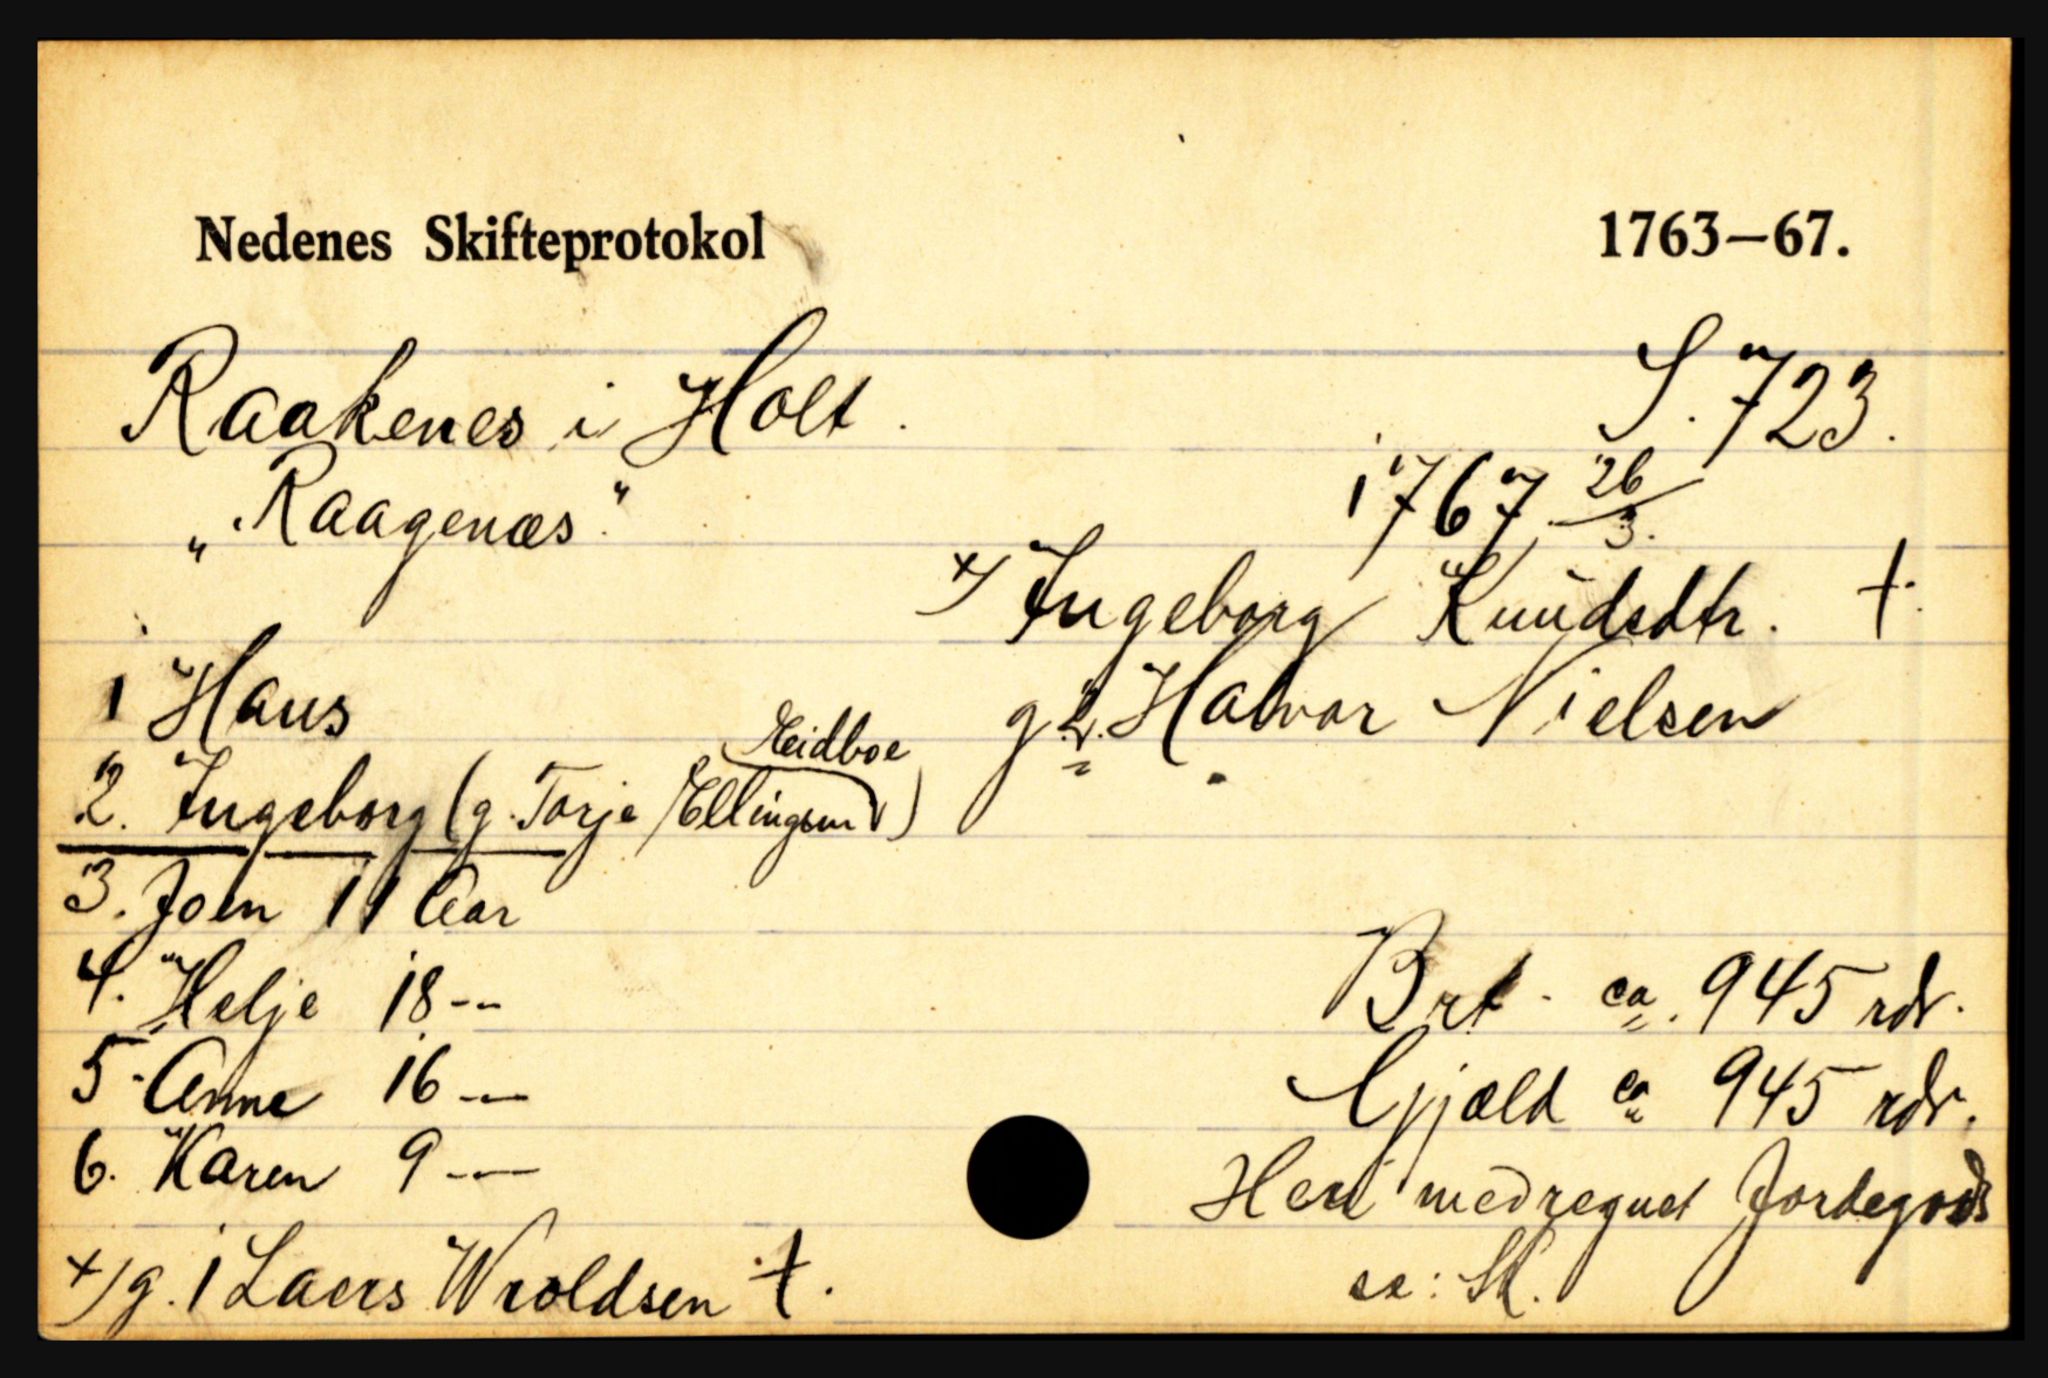 Nedenes Skifteprotokol 1763–67.
Raakenes i Holt. S. 723.
"Raagenæs." 1767 26/3.
+) Ingeborg Knudsdtr. †.
1 Hans g 2. Halvor Nielsen
Eidboe
2. Ingeborg (g. Torje Ellingsen)
3. Joen 11 Aar
4. Helje 18 --- Brt. ca. 945 rdr.
5. Anne 16 --- Gjæld ca 945 rdr.
6. Karen 9 --- Heri medregnet Jordegods
+) g. 1 Laers Wroldsen †. se: Sk.